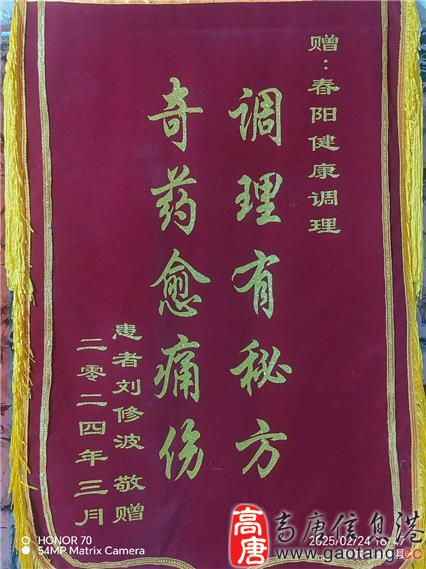 赠：春阳健康调理
调理有秘方
奇药愈痛伤
患者刘修波 敬赠
二零二四年三月
HONOR 70
54MP Matrix Camera
2025/02/24
高唐
高唐信息港
www.gaotang.cc